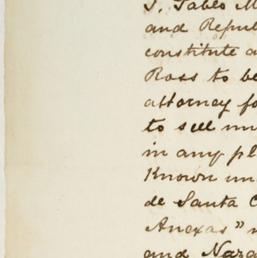 I, Pablo M
and Repu
constitute a
Ross to be
attorney fo
to sell
in any pl
Known un
de Santa C
Anexas"
and Naza